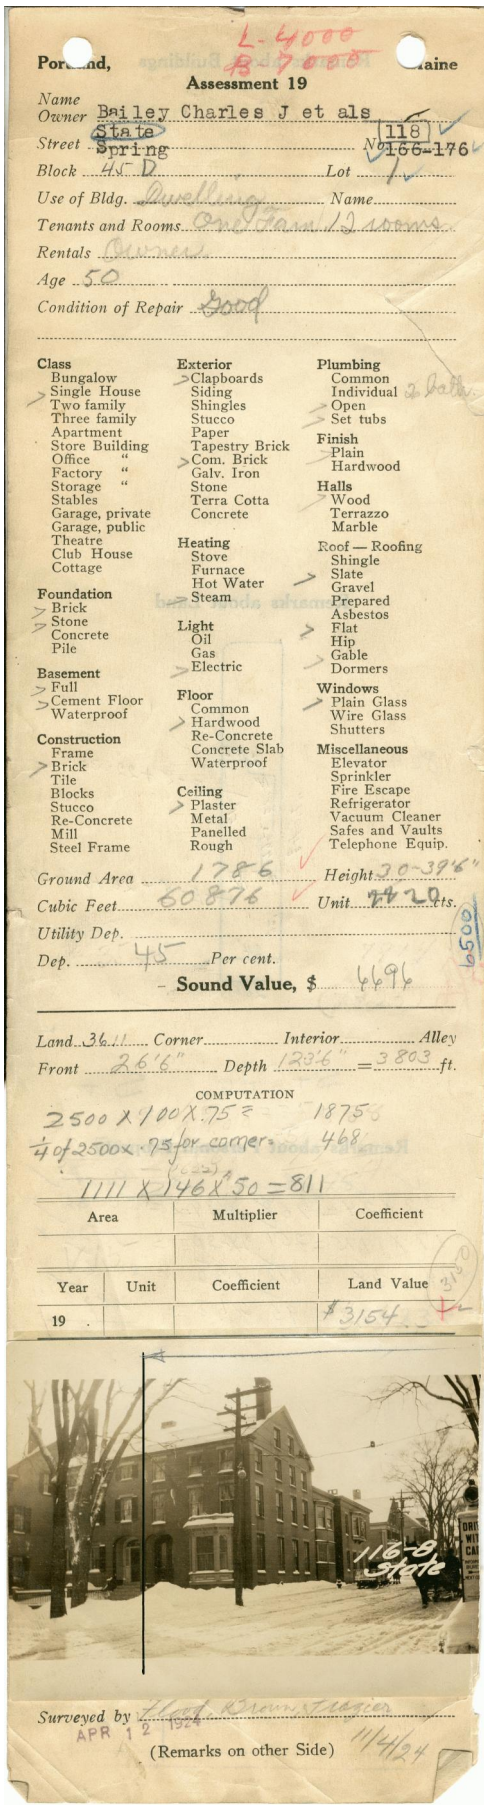 L-4000
B 7000
Portland, Maine
Assessment 19
Name
Owner Bailey Charles J et als
State 118
Street Spring No 166-176
Block 45 D Lot 1
Use of Bldg. Dwelling Name
Tenants and Rooms One Fam 12 rooms
Rentals Owner
Age 50
Condition of Repair Good
Class
Bungalow
Single House
Two family
Three family
Apartment
Store Building
Office "
Factory "
Storage "
Stables
Garage, private
Garage, public
Theatre
Club House
Cottage
Foundation
Brick
Stone
Concrete
Pile
Basement
Full
Cement Floor
Waterproof
Construction
Frame
Brick
Tile
Blocks
Stucco
Re-Concrete
Mill
Steel Frame
Exterior
Clapboards
Siding
Shingles
Stucco
Paper
Tapestry Brick
Com. Brick
Galv. Iron
Stone
Terra Cotta
Concrete
Heating
Stove
Furnace
Hot Water
Steam
Light
Oil
Gas
Electric
Floor
Common
Hardwood
Re-Concrete
Concrete Slab
Waterproof
Ceiling
Plaster
Metal
Panelled
Rough
Plumbing
Common
Individual 2 bath
Open
Set tubs
Finish
Plain
Hardwood
Halls
Wood
Terrazzo
Marble
Roof — Roofing
Shingle
Slate
Gravel
Prepared
Asbestos
Flat
Hip
Gable
Dormers
Windows
Plain Glass
Wire Glass
Shutters
Miscellaneous
Elevator
Sprinkler
Fire Escape
Refrigerator
Vacuum Cleaner
Safes and Vaults
Telephone Equip.
Ground Area 1786 Height 30-39'6"
Cubic Feet 60876 Unit 20 cts.
Utility Dep.
6500
Dep. 45 Per cent.
Sound Value, $ 6696
Land 3611 Corner Interior Alley
Front 26'6" Depth 123'6" = 3803 ft.
COMPUTATION
2500 X 100 X .75 = 1875
1/4 of 2500 x .75 for corner = 468
1111 X 146 X 50 = 811
Area Multiplier Coefficient
3150
Year Unit Coefficient Land Value
19 $3154
116-8
State
Surveyed by Flood, Brown, Frazier
APR 12 1924
11/4/24
(Remarks on other Side)